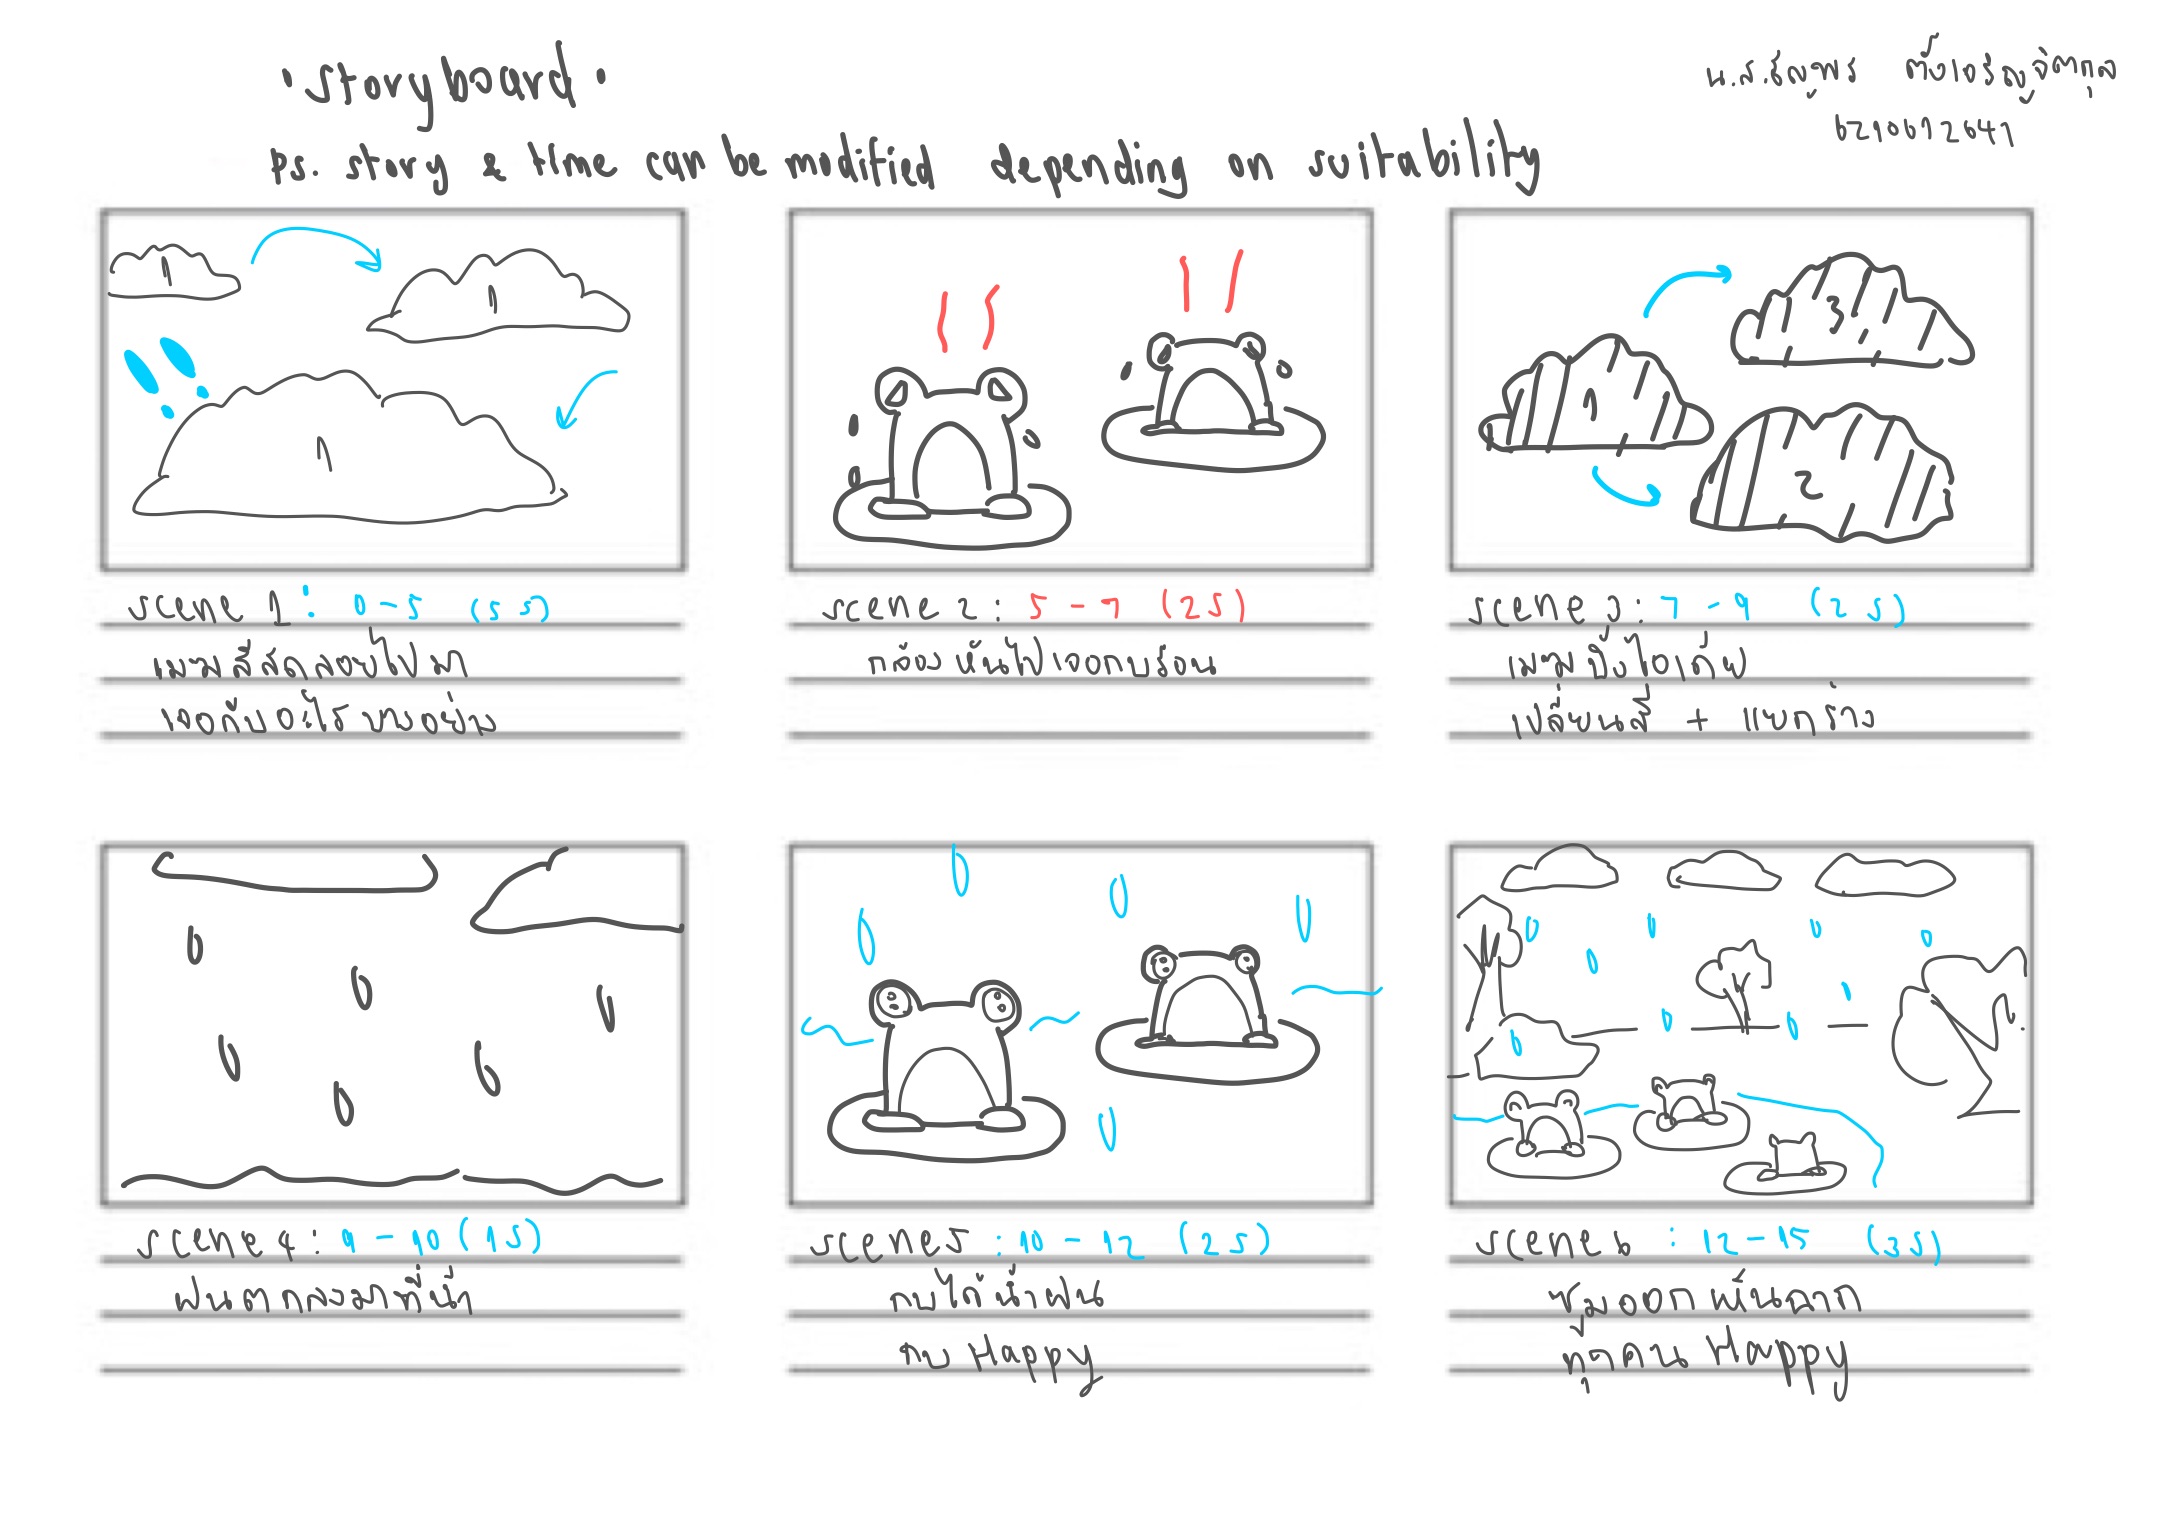 • storyboard •
น.ส.ธัญพร ตั้งเจริญจิตกุล
6210612641
ps. story & time can be modified depending on suitability
1
1
1
1
3
2
scene 1 : 0 - 5 (5s)
เมฆสีสดลอยไปมา
เจอกับอะไรบางอย่าง
scene 2 : 5 - 7 (2s)
กล้องหันไปเจอกบร้อน
scene 3 : 7 - 9 (2s)
เมฆปิ๊งไอเดีย
เปลี่ยนสี + แยกร่าง
scene 4 : 9 - 10 (1s)
ฝนตกลงมาที่น้ำ
scene 5 : 10 - 12 (2s)
กบได้น้ำฝน
กบ Happy
scene 6 : 12 - 15 (3s)
ซูมออกเห็นฉาก
ทุกคน Happy